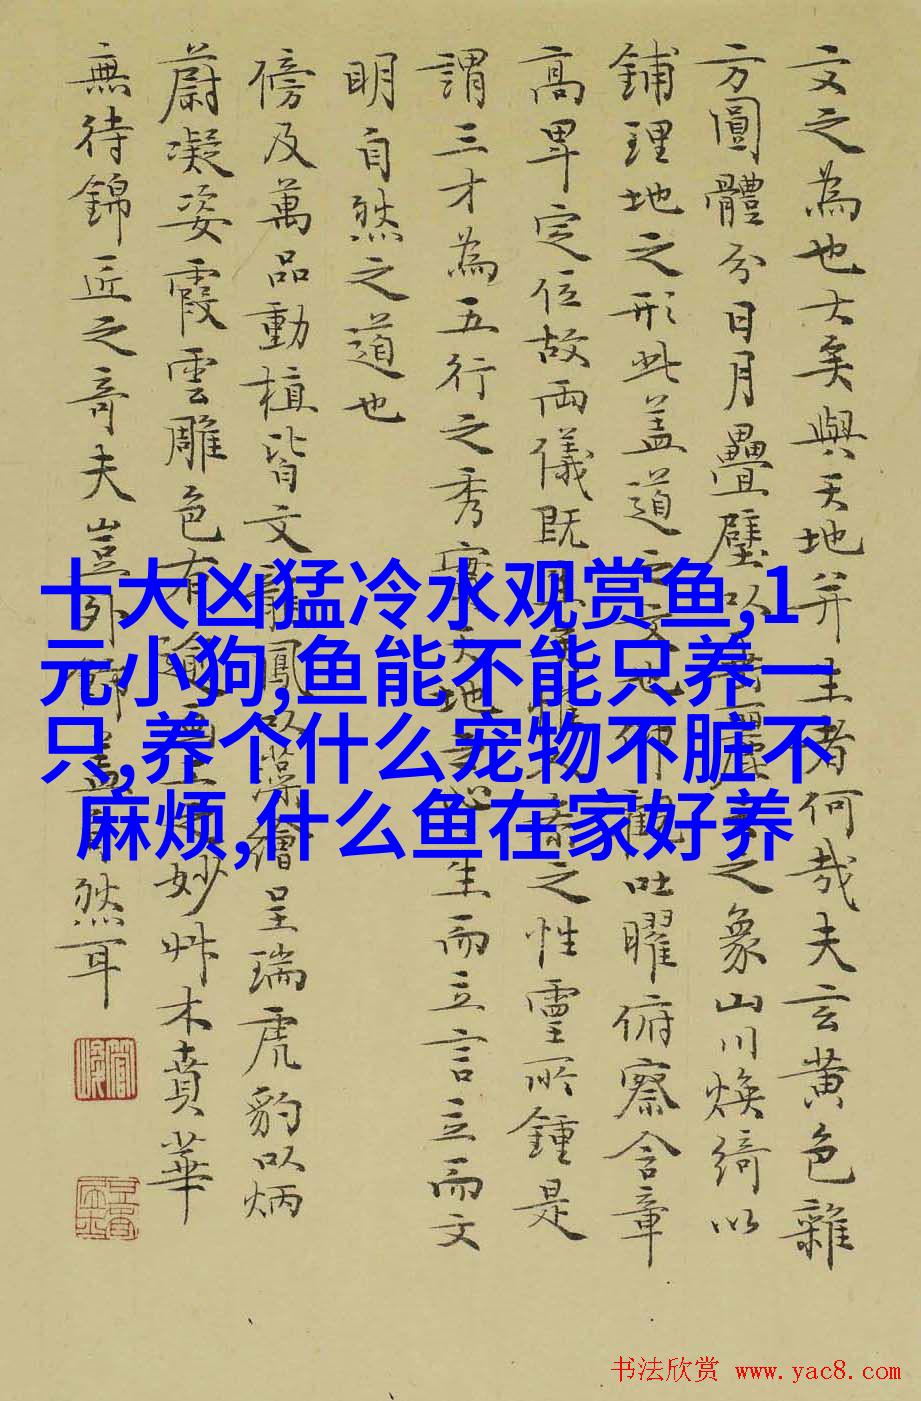 文之為也大矣與天地并生者何哉夫玄黄色雜
方圓體分日月疊璧以
之象山川煥綺以
鋪理地之形此盖道之文也仰觀吐曜俯察含章
高卑定位故兩儀既
之性靈所鍾是
謂三才為五行之秀實天地
生而立言立而文
明自然之道也
傍及萬品動植皆文龍鳳以
繪呈瑞虎豹以炳
蔚凝姿霞雲雕色有
妙艸木賁華
無待錦匠之奇夫豈外飾
然耳
十大凶猛冷水观赏鱼,1
元小狗,鱼能不能只养一
只,养个什么宠物不脏不
麻烦,什么鱼在家好养
书法欣赏 www.yac8.com